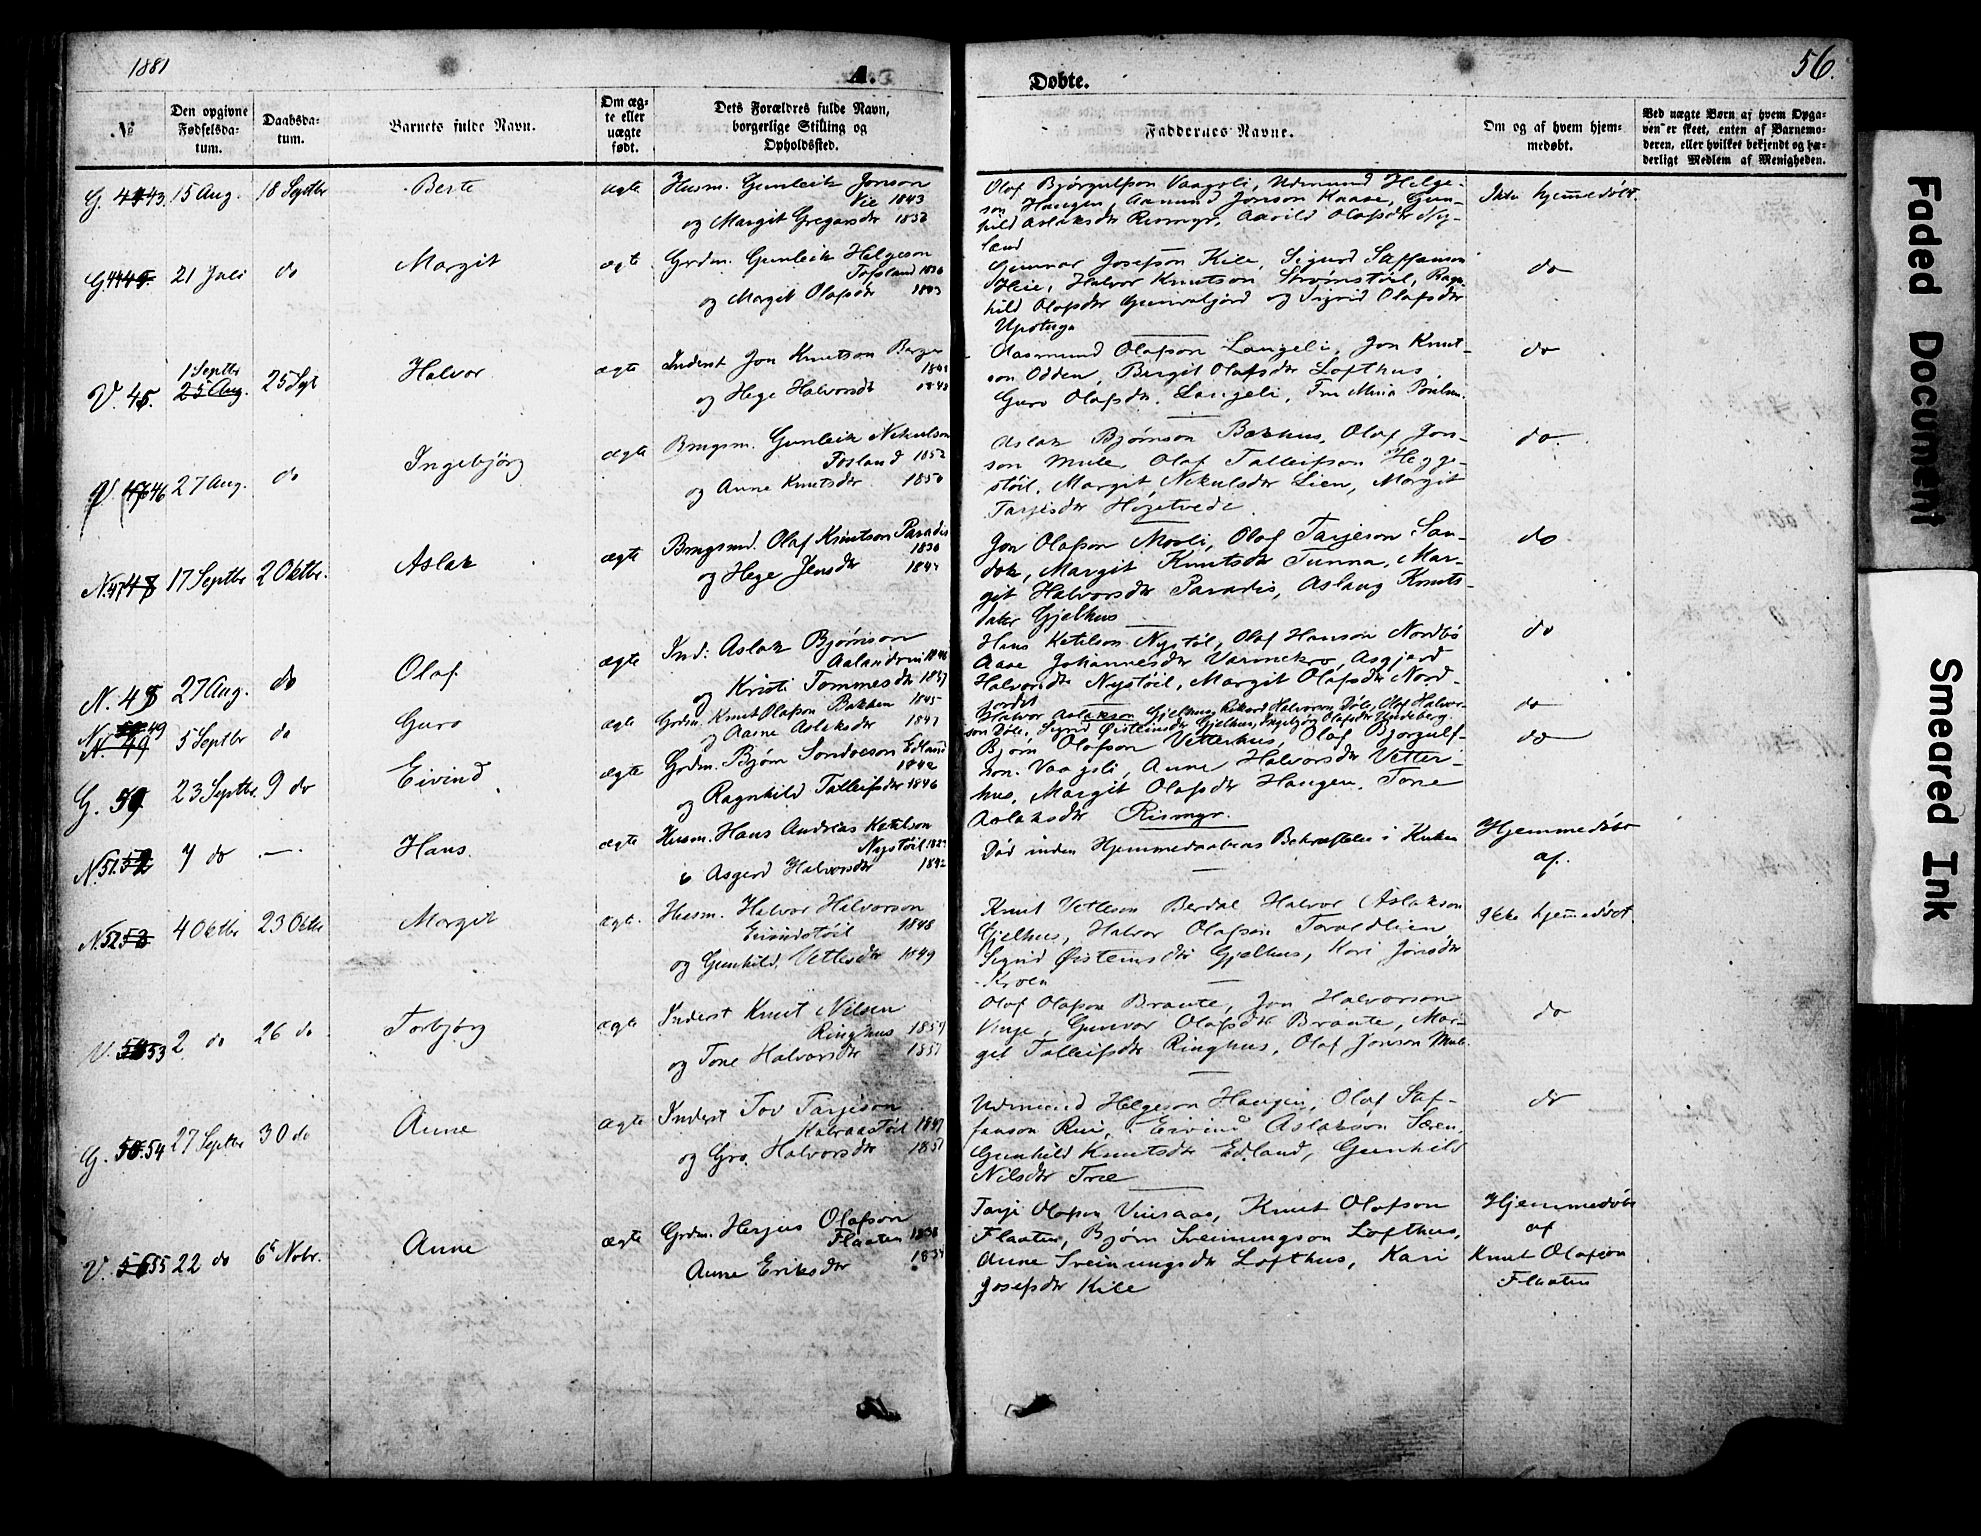 1881
A.
Døbte.
56.
№
Den opgivne Fødselsda-
tum.
Daabsda-
tum.
Barnets fulde Navn.
Om æg-
te eller
uægte
født.
Dets Forældres fulde Navn,
borgerlige Stilling og
Opholdssted.
Faddernes Navne.
Om og af hvem hjem-
medøbt.
Ved uægte Børn af hvem Opga-
ven er skeet, enten af Barnemo-
deren, eller hvilket bekjendt og hæ-
derligt Medlem af Menigheden.
G. 43. 15 Aug. 18 Septbr Berte ægte Husm. Gunleik Jonson
Vie 1843
og Margit Gregarsdr 1838
Olaf Bjørgulfson Vaagsli, Udmund Helge-
son Haugen, Aamund Jonson Kaase, Gun-
hild Aslaksdr Rismyr, Aavild Olafsdr Ny-
land
Ikke hjemmedøbt.
G. 44 21 Juli do Margit ægte Grdm. Gunleik Helgeson
Fosland 1836
og Margit Olafsdr 1843
Gunnar Josefson Kile, Sigurd Staffanson
Heie, Halvor Knutson Strømstøil, Ragn-
hild Olafsdr Gunvaljord og Sigrid Olafsdr
Upstuga
do
V. 45. 1 Septbr
25 Aug. 25 Spt Halvor ægte Inderst Jon Knutson Berge
og Hege Halvorsdr 1848
Aasmund Olafson Langeli, Jon Knut-
son Odden, Bergit Olafsdr Lofthus
Guro Olafsdr. Langeli, Fru Mina Poulsen.
do
V. 46 27 Aug. do Ingebjørg ægte Brugsm. Gunleik Nikulson
Fosland 1852
og Anne Knutsdr 1850
Aslak Bjørnson Bakhus, Olaf Jon-
son Mule, Olaf Talleifson Hegge-
støil, Margit Nikulsdr Lien, Margit
Tarjeisdr Høgetvedt.
do.
N. 47 17 Septbr 2 Oktbr. Aslak ægte Brugsmd. Olaf Knutson Paradis
1830
og Hege Jensdr
Jon Olafson Moli, Olaf Tarjeson San-
dok, Margit Knutsdr Tunna, Mar-
git Halvorsdr Paradis, Aslaug Knuts-
dater Gjelhus
do
N. 48 27 Aug. do Olaf ægte Ind: Aslak Bjørnson
Aalandsvin 1846
og Kristi Tommesdr 1847
Hans Ketilson Nystøl, Olaf Hanson Nordbø
Aase Johannesdr Varmekro, Asgjerd
Halvorsdr Nystøil, Margit Olafsdr Nord-
jordet
do
N. 49 5 Septbr do Guro ægte Grdm. Knut Olafson Bakken 1845
og Aasne Aslaksdr 1841
Halvor Aslakson Gjelhus, Rikard Halvorson Døle, Olaf Halvor-
son Døle, Sigrid Østeinsdr Gjelhus, Ingebjør Olafsdr Lindeberg.
do
G. 50 23 Septbr. 9 do Eivind ægte Grdm. Bjørn Sondreson Edland
1842
og Ragnhild Talleifsdr 1846
Bjørn Olafson Vetterhus, Olaf Bjørgulf-
son Vaagsli, Anne Halvorsdr Vetter-
hus, Margit Olafsdr Haugen, Tone
Aslaksdr Rismyr.
do
N. 51. 7 do — Hans. ægte Husm. Hans Andreas Ketelson
Nystøil
og Asgerd Halvorsdr 1842
Død inden Hjemmedaabens Bekræftelse i Kirken
Hjemmedøbt
af.
N. 52 4 Oktbr 23 Oktbr Margit ægte Husm. Halvor Halvorson
Eivindstøil 1848
og Gunhild Vetlesdr 1849
Knut Vetleson Berdal, Halvor Aslakson
Gjelhus, Halvor Olafson Tovedlien
Sigrid Østeinsdr Gjelhus, Kari Jonsdr
Kroen
Ikke hjemmedøbt.
V. 53 2 do 26 do Torbjørg ægte Inderst Knut Nilsen
Ringhus 1859
og Tone Halvorsdr 1857
Olaf Olafson Braate, Jon Halvorson
Vinje, Gunvor Olafsdr Braate, Mar-
git Talleifsdr Ringhus, Olaf Jonson Mule.
do
G. 54 27 Septbr 30 do Anne ægte Inderst Tov Tarjeson
Kalvaastøil 1847
og Gro Halvorsdr 1851
Udmund Helgeson Haugen, Olaf Staf-
fanson Rui, Eivind Aslakson Særen,
Gunhild Knutsdr Edland, Gunhild
Nilsdr Træ
do
V. 55 22 do 6t Nobr. Anne ægte Grdm. Herjus Olafson
Flaaten 1838
Anne Eriksdr
Tarje Olafson Vinsaas, Knut Olafson
Flaaten, Bjørn Sveinungson Lofthus,
Anne Sveinungsdr Lofthus, Kari
Josefsdr Kile
Hjemmedøbt
af
Knut Olafson
Flaaten
Faded Document
Smeared Ink